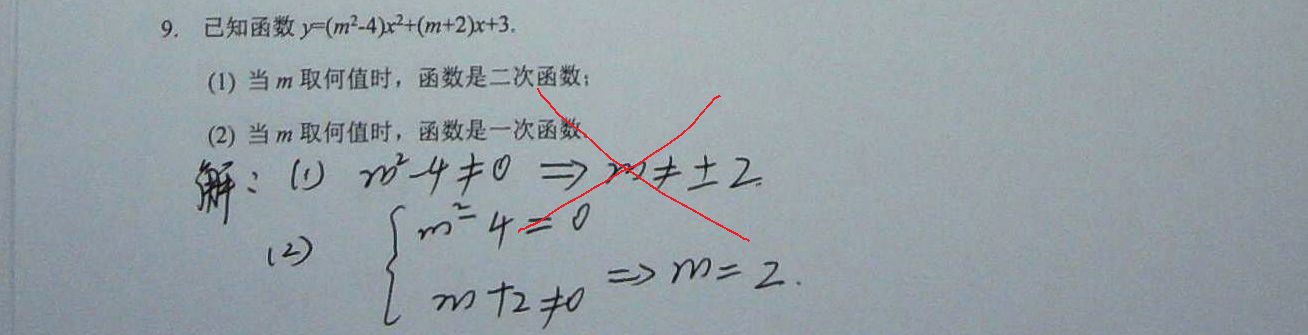 9. 已知函数 y=(m²-4)x²+(m+2)x+3.
(1) 当 m 取何值时，函数是二次函数；
(2) 当 m 取何值时，函数是一次函数.
解：(1) m²-4≠0 ⇒ m≠±2.
(2) { m²-4=0
m+2≠0 ⇒ m=2.